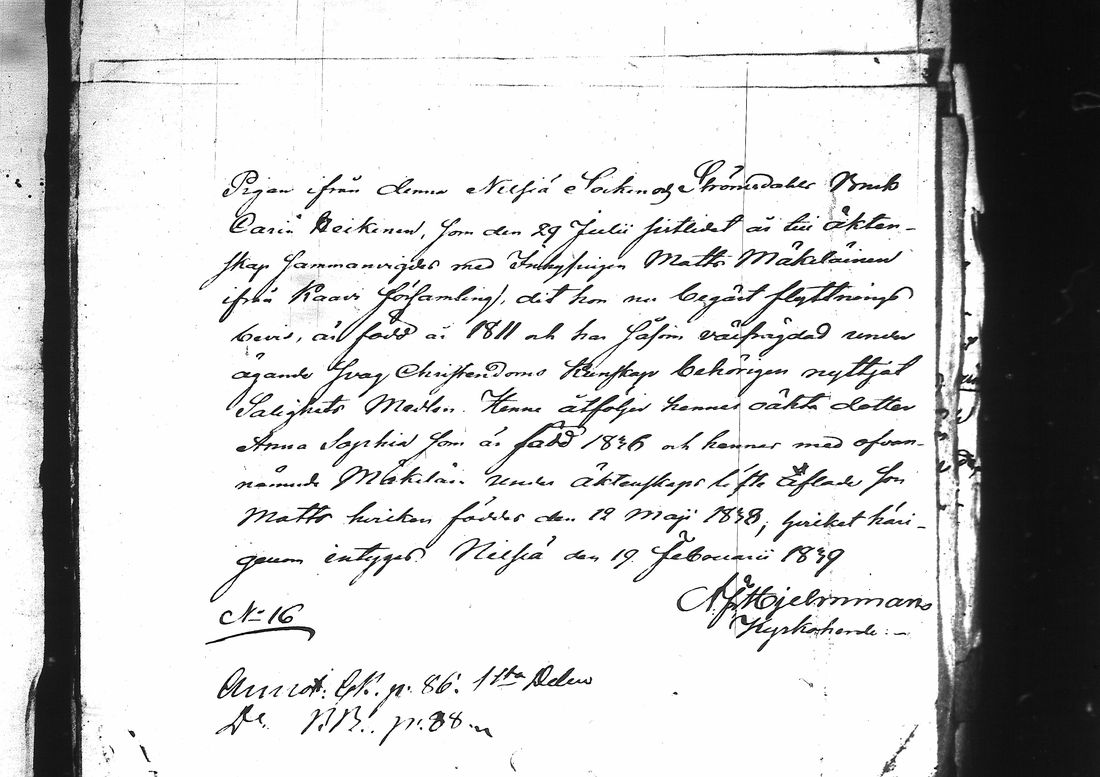 Pigan ifrån denna Nilsiä Socken och Strömsdahls Bruk
Carin Heikinen, som den 29 Julii sistledet år till äkten-
skap sammanvigdes med Inhysingen Matts Mäkeläinen
ifrån Kaavi Församling, dit hon nu begärt flyttnings
bevis, är född år 1811 och har såsom välfrägdad under
ägande svag Christendoms Kunskap behörigen nyttjat
Salighets Medlen. Henne åtföljer hennes oäkta dotter
Anna Sophia som är född 1836 och hennes med ofvan-
nämnde Mäkeläin under äktenskaps löfte aflade son
Matts hvilken föddes den 12 Maji 1838, hvilket häri-
genom intygas. Nilsiä den 19 Februarii 1839
Hjelmmans
Kyrkoherde.
No 16
Annot. p. 86. 1sta Delen
Do B.B. p. 88